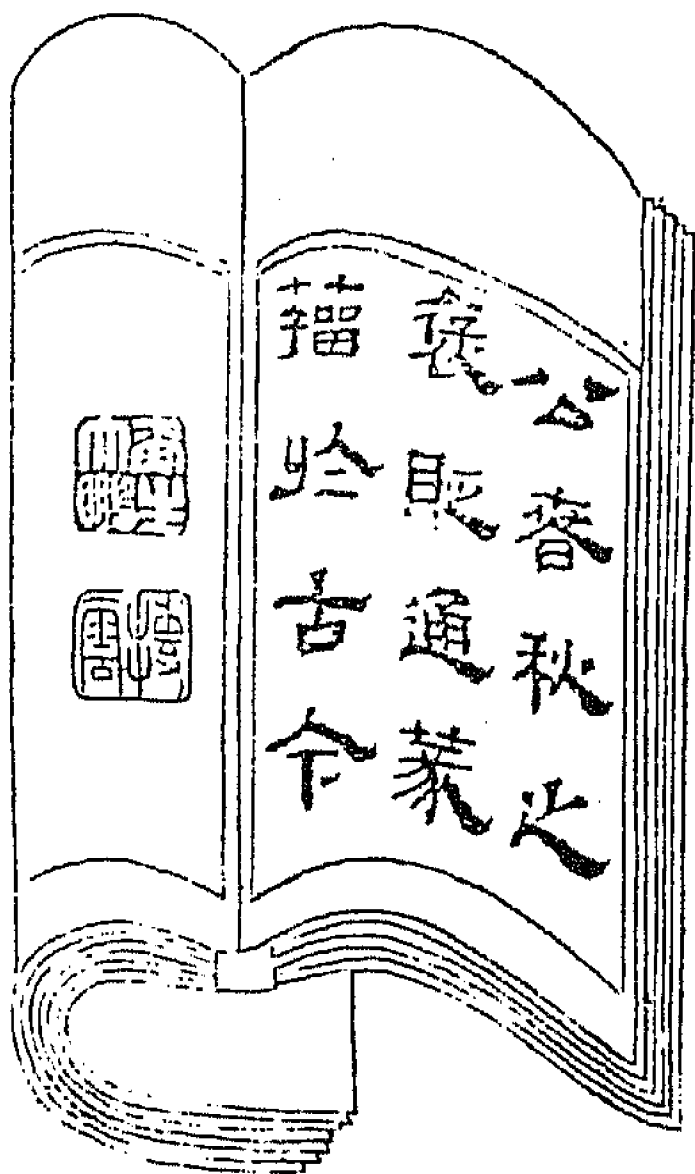 公春秋之
褒貶通篆
籀於古今